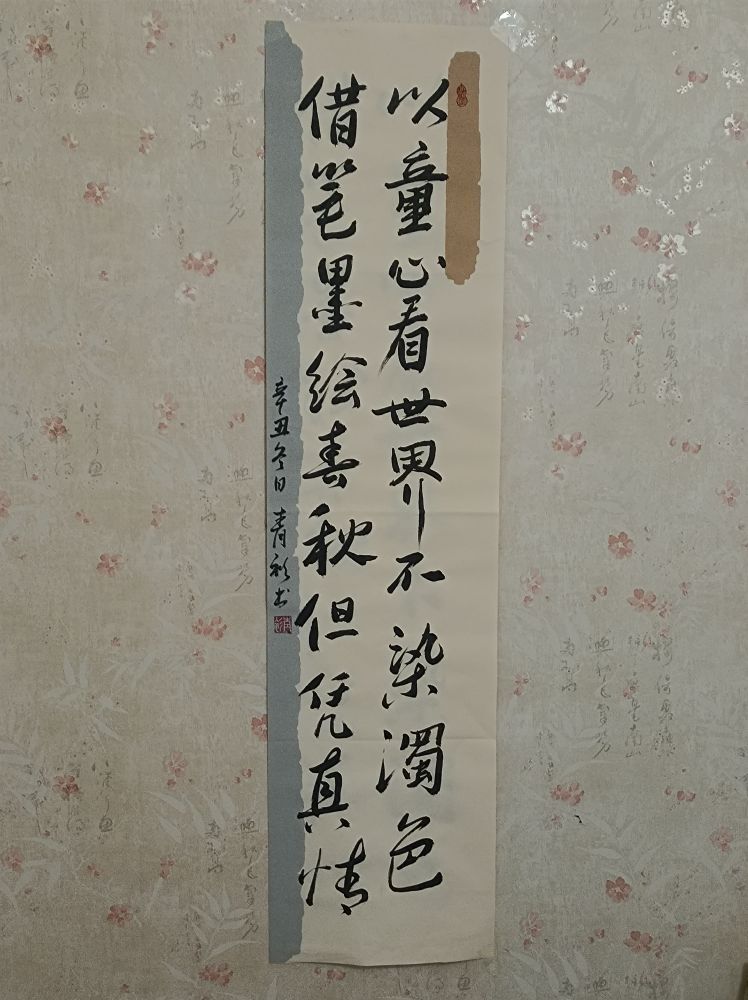 以童心看世界不染濁色
借笔墨绘春秋但凭真情
辛丑冬日青彩书